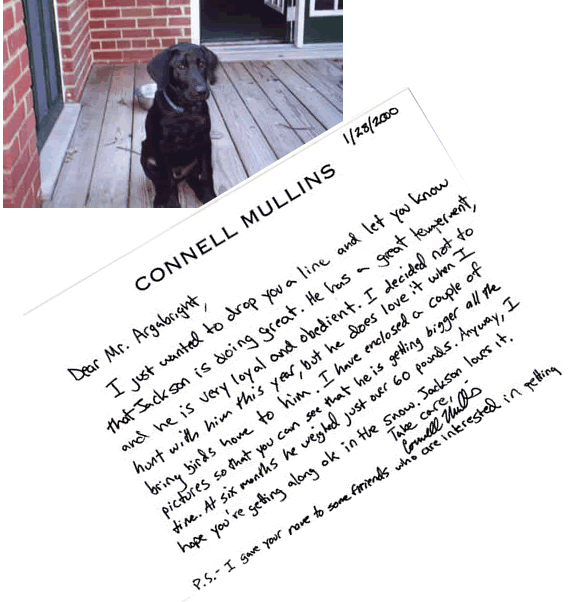 1/28/2000
CONNELL MULLINS
Dear Mr. Argabright,
I just wanted to drop you a line and let you know
that Jackson is doing great. He has a great temperment,
and he is very loyal and obedient. I decided not to
hunt with him this year, but he does love it when I
bring birds home to him. I have enclosed a couple of
pictures so that you can see that he is getting bigger all the
time. At six months he weighed just over 60 pounds. Anyway, I
hope you're getting along ok in the snow. Jackson loves it.
Take care,
Connell Mullins
P.S.- I gave your name to some friends who are interested in getting